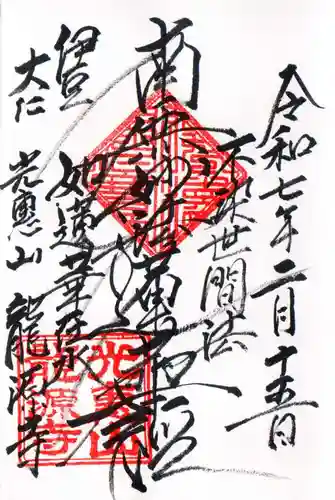 令和七年二月十五日
不染世間法
南無妙法蓮華経
如蓮華在水
伊豆
大仁 光恵山 龍源寺
光恵山
龍源寺